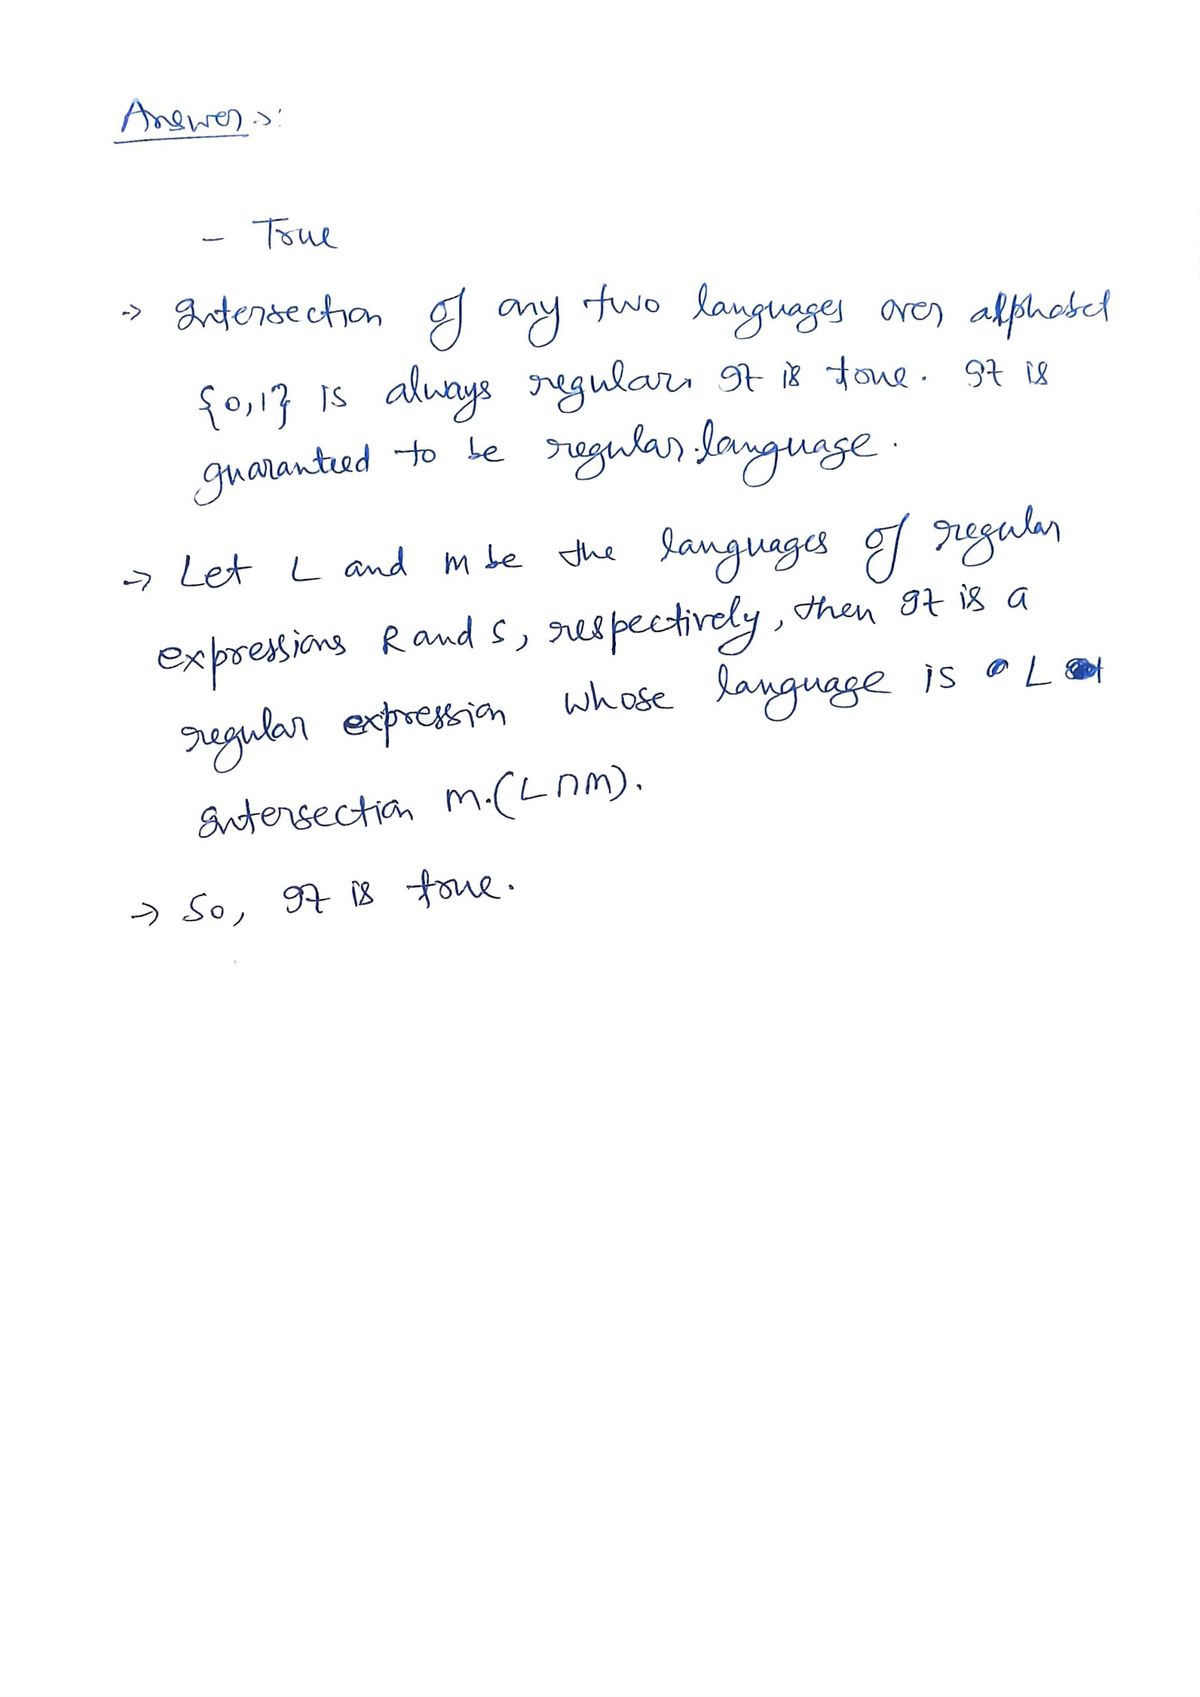 Answer →:
- True
→ Intersection of any two languages over alphabet
{0,1} is always regular. It is true. It is
guaranteed to be regular language.
→ Let L and M be the languages of regular
expressions R and S, respectively, then It is a
regular expression whose language is L
intersection M. (L∩M).
→ So, It is true.